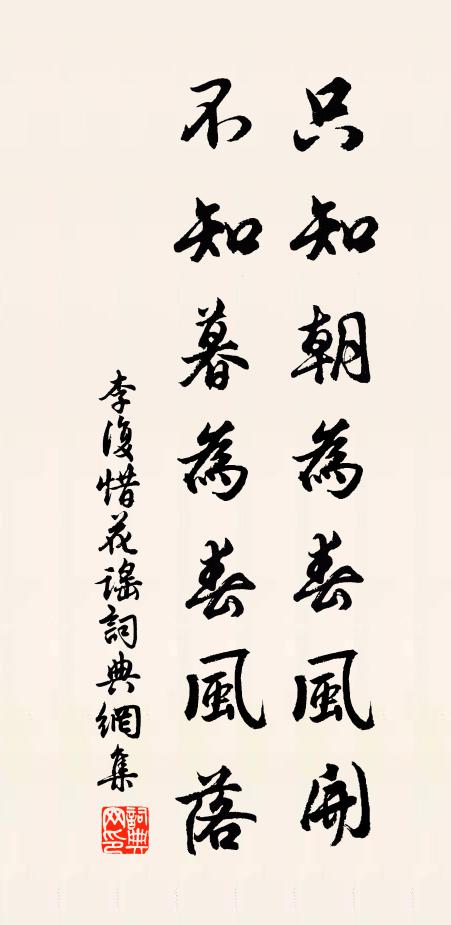 只知朝為春風開
不知暮為春風落
李復惜花謠詞典網集
詞典網印